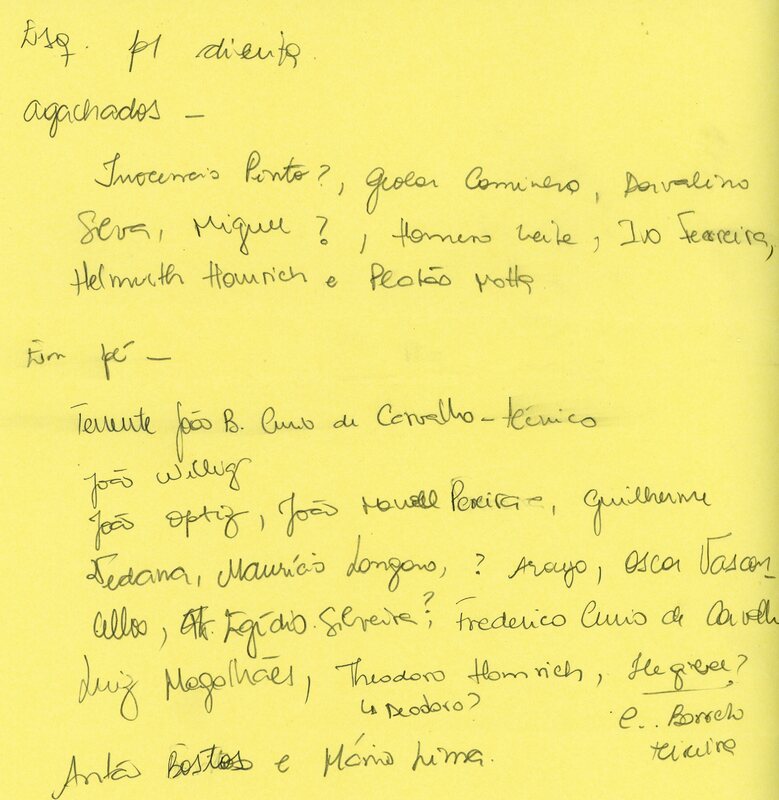 Esq. p/ direita.
agachados –
Inocencio Pinto?, Geolar Caminero, Dorvalino
Silva, Miguel ?, Homero Leite, Ivo Ferreira,
Helmuth Homrich e Platão Motta
Em pé –
Tenente João B. Curio de Carvalho – técnico
João Willig
João Optiz, João Manoel Pereira, Guilherme
Vedana, Maurício Longono, ? Araujo, Oscar Vascon-
cellos, Egídio Silveira?, Frederico Curio de Carvalh
Luiz Magalhães, Theodoro Homrich, Ilegível?
↳ Deodoro? C.. Barreto
Antão Bastos e Mário Lima. teixeira